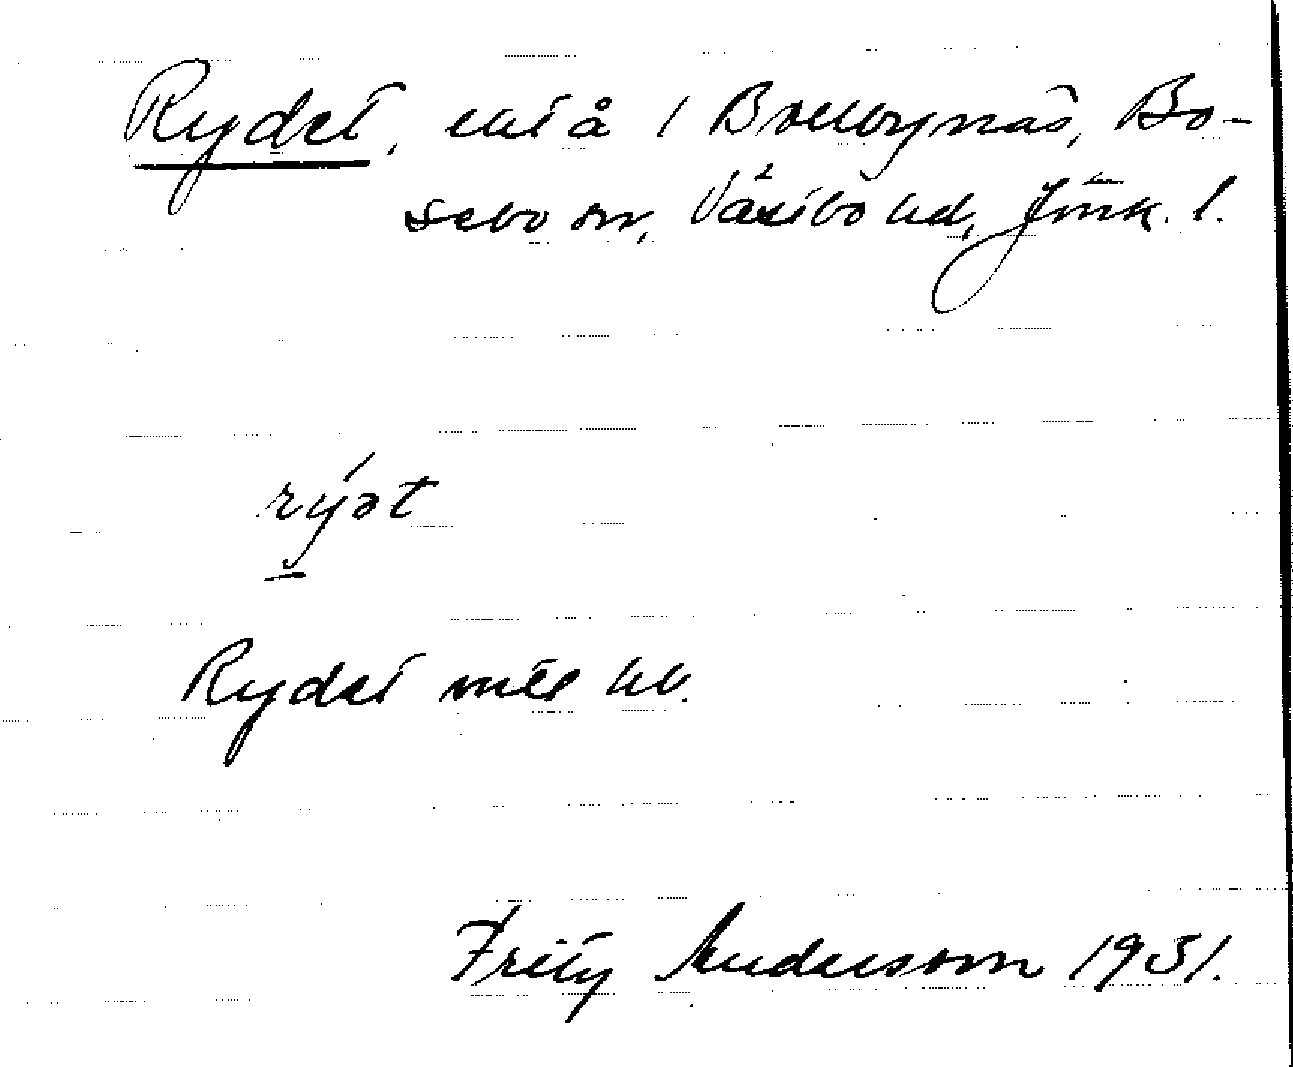 Rydet, utl å / Bollbynäs, Bo-
sebo sn, Västbo hd, Jönk. l.
rýət
Rydet enl. hb.
Fritz Andersson 1931.